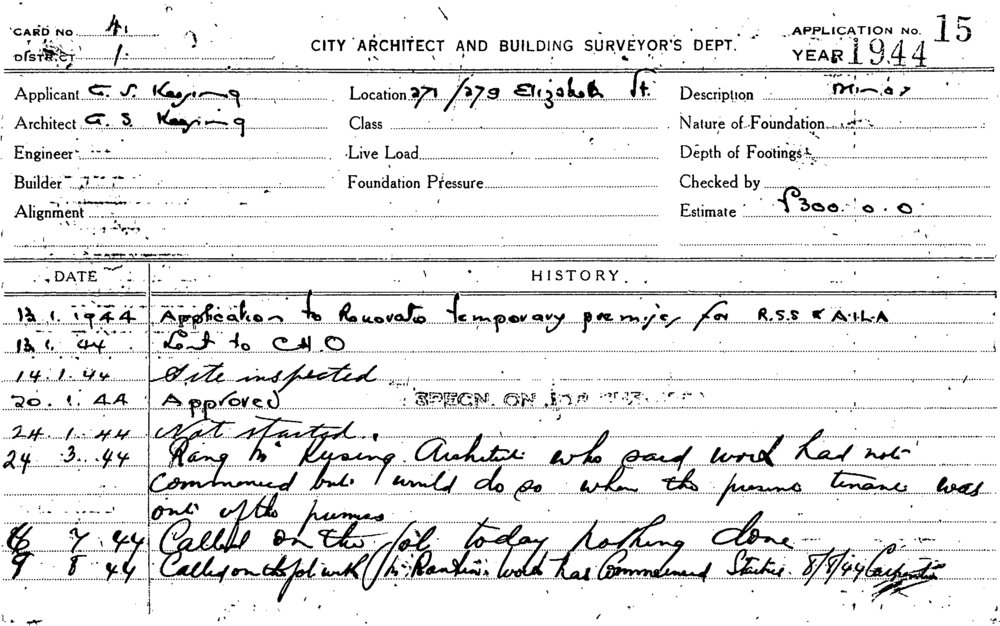 CARD No 4.
DISTRICT 1.
CITY ARCHITECT AND BUILDING SURVEYOR'S DEPT.
APPLICATION No. 15
YEAR 1944
Applicant
Location 271/279 Elizabeth St.
Description Minor
Architect
Class
Nature of Foundation
Engineer
Live Load
Depth of Footings
Builder
Foundation Pressure
Checked by
Alignment
Estimate £300. 0. 0
DATE HISTORY
13 1. 1944 Application to Renovate temporary premises for R.S.S & A.I.L.A
13. 1. 44 to C.H.O
14. 1. 44 Site inspected
20. 1. 44 Approved SPECN. ON
24. 1. 44 Not started.
24 3. 44 Rang Mr Architect who said work had not
commenced but would do so when the present tenant was
out of the premises
7 44 Called on the job today nothing done
9 8 44 Called on the job with Mr work has Commenced 8/8/44